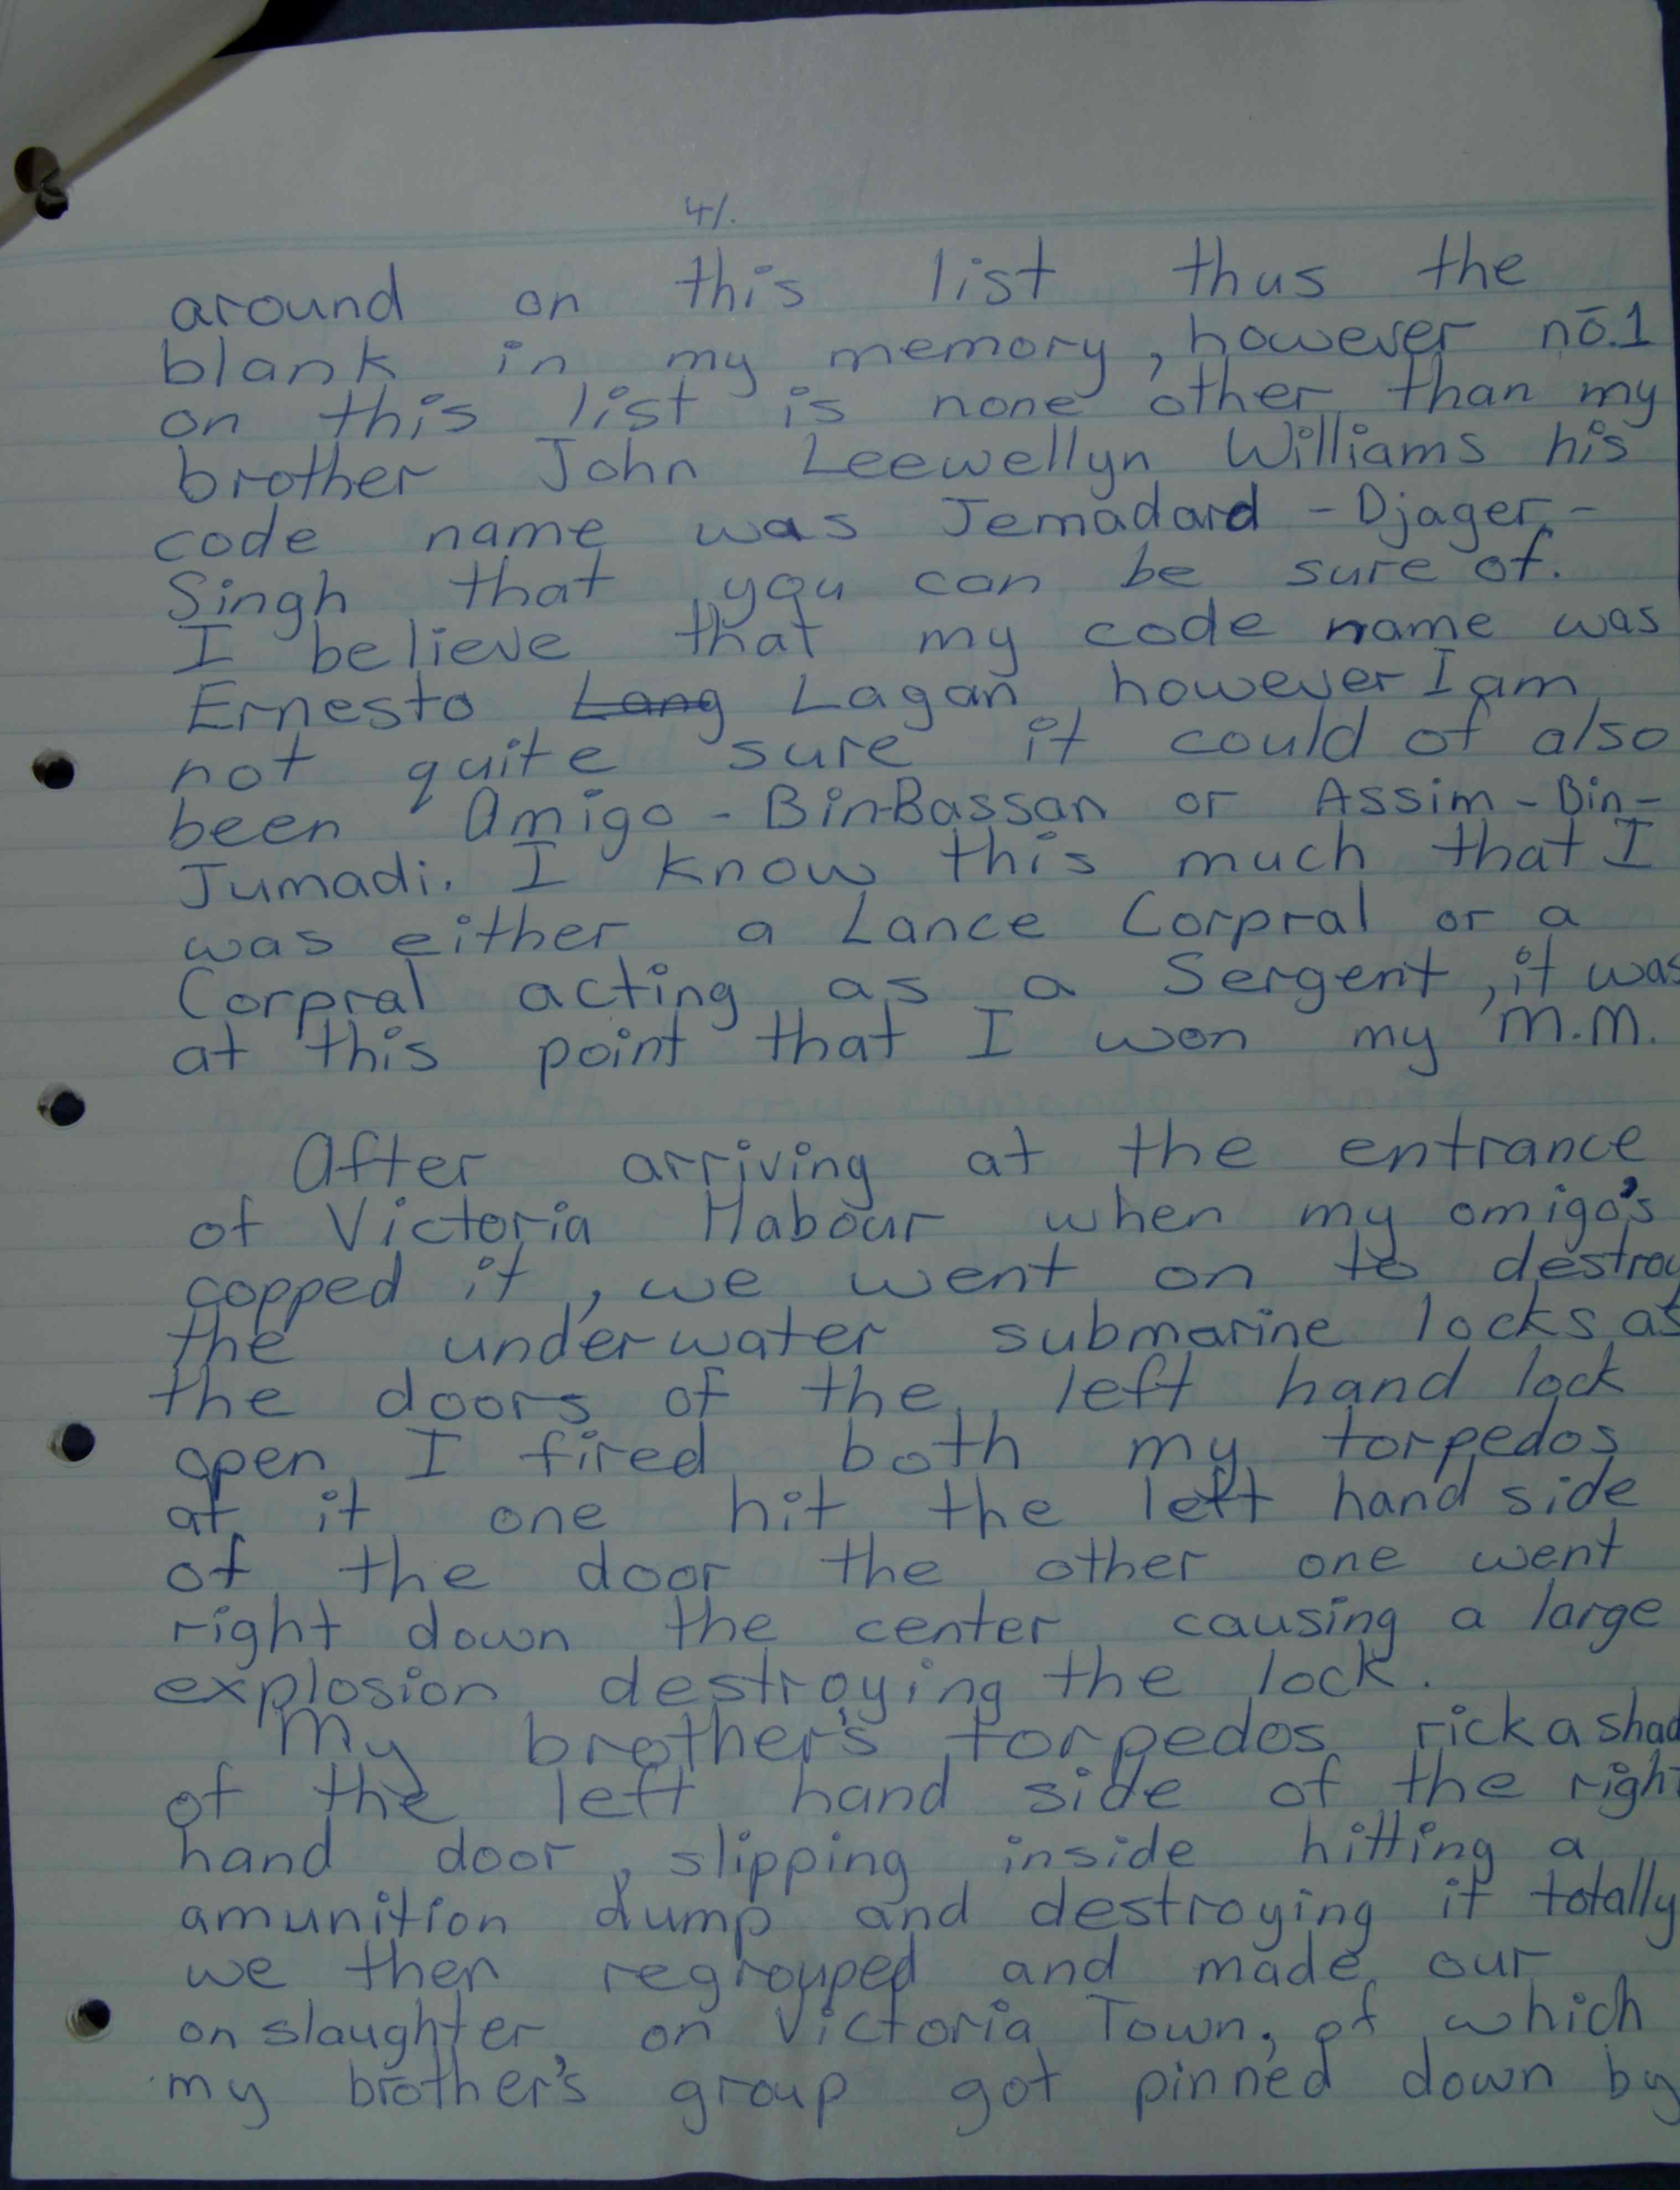 4/.
around on this list thus the
blank in my memory, however no.1
on this list is none other than my
brother John Leewellyn Williams his
code name was Jemadard - Djager -
Singh that you can be sure of.
I believe that my code name was
Ernesto Lang Lagan however I am
not quite sure it could of also
been Amigo - Bin-Bassan or Assim - Bin -
Jumadi. I know this much that I
was either a Lance Corpral or a
Corpral acting as a Sergent, it was
at this point that I won my M.M.
After arriving at the entrance
of Victoria Habour when my omigo's
copped it, we went on to destroy
the underwater submarine locks as
the doors of the left hand lock
open I fired both my torpedos
at it one hit the left hand side
of the door the other one went
right down the center causing a large
explosion destroying the lock.
My brother's torpedos rickashad
of the left hand side of the right
hand door, slipping inside hitting a
amunition dump and destroying it totally
we then regrouped and made our
onslaughter on Victoria Town, of which
my brother's group got pinned down by